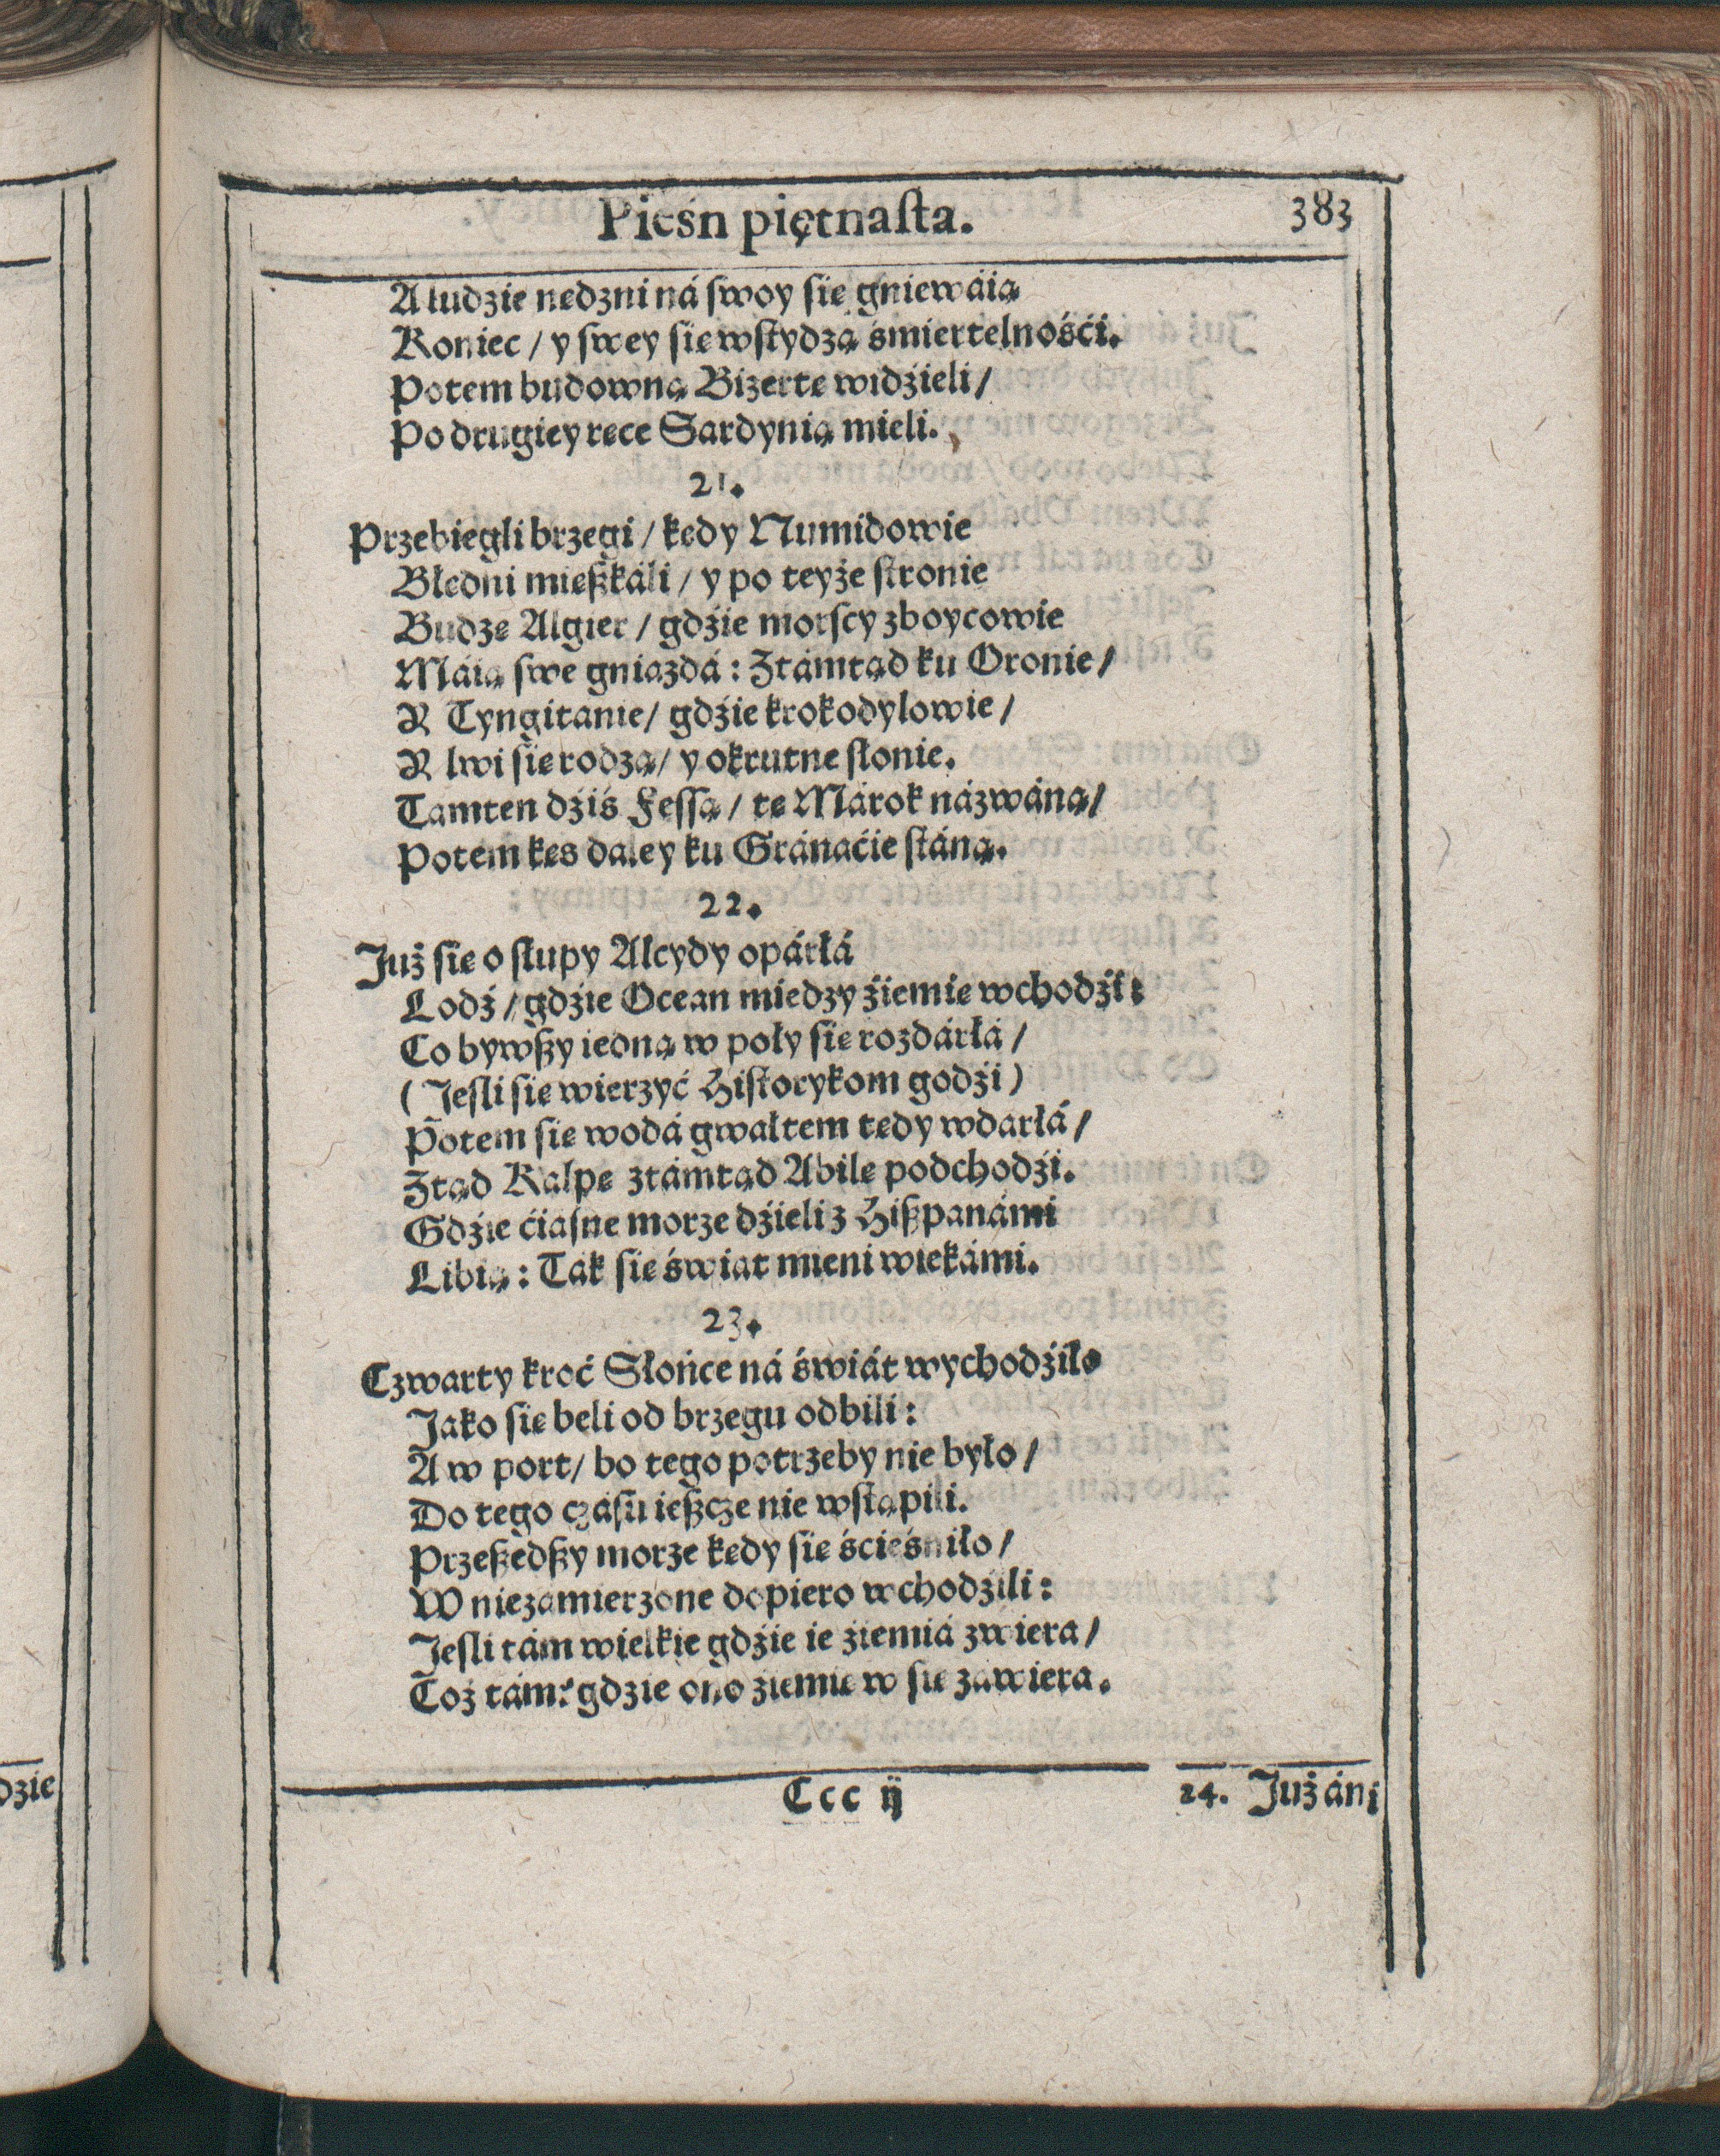 Pieśń piętnaſta.
383
A ludzie nedzni ná ſwoy ſię gniewáią
Koniec / y ſwey ſie wſtydzą śmiertelnośći.
Potem budowną Bizertę widźieli /
Po drugiey ręce Sardynią mieli.
21.
Przebiegli brzegi / kędy Numidowie
Błędni mießkáli / y po teyże ſtronie
Budzę Algier / gdźie morſcy zboycowie
Máią ſwe gniazdá : Ztámtąd ku Oronie /
Y Tyngitanie / gdźie krokodylowie /
Y lwi ſię rodzą / y okrutne ſłonie.
Tamten dźiś Feſſą / tę Márok názwáną /
Potem kęs daley ku Gránaćie ſtáną.
22.
Już ſię o ſłupy Alcydy opárłá
Lodź / gdźie Ocean miedzy źiemie wchodźi :
Co bywßy iedną w poły ſię rozdárłá /
( Jeſli ſię wierzyć Hiſtorykom godźi )
Potem ſię wodá gwałtem tedy wdarłá /
Ztąd Kalpę ztámtąd Abilę podchodźi.
Gdźie ćiaſne morze dźieli z Hißpanámi
Libią : Ták ſię świat mieni wiekámi.
23.
Czwarty kroć Słońce ná świát wychodźiło
Jako ſię beli od brzegu odbili :
A w port / bo tego potrzeby nie było /
Do tego czáſu ießcze nie wſtąpili.
Przeßedßy morze kędy ſię ścieśniło /
W niezamierzone dopiero wchodźili :
Jeſli tám wielkie gdźie ie źiemiá zwiera /
Coż tám? gdzie ono źiemię w ſię záwiera.
Ccc ij
24. Już áni
dzie